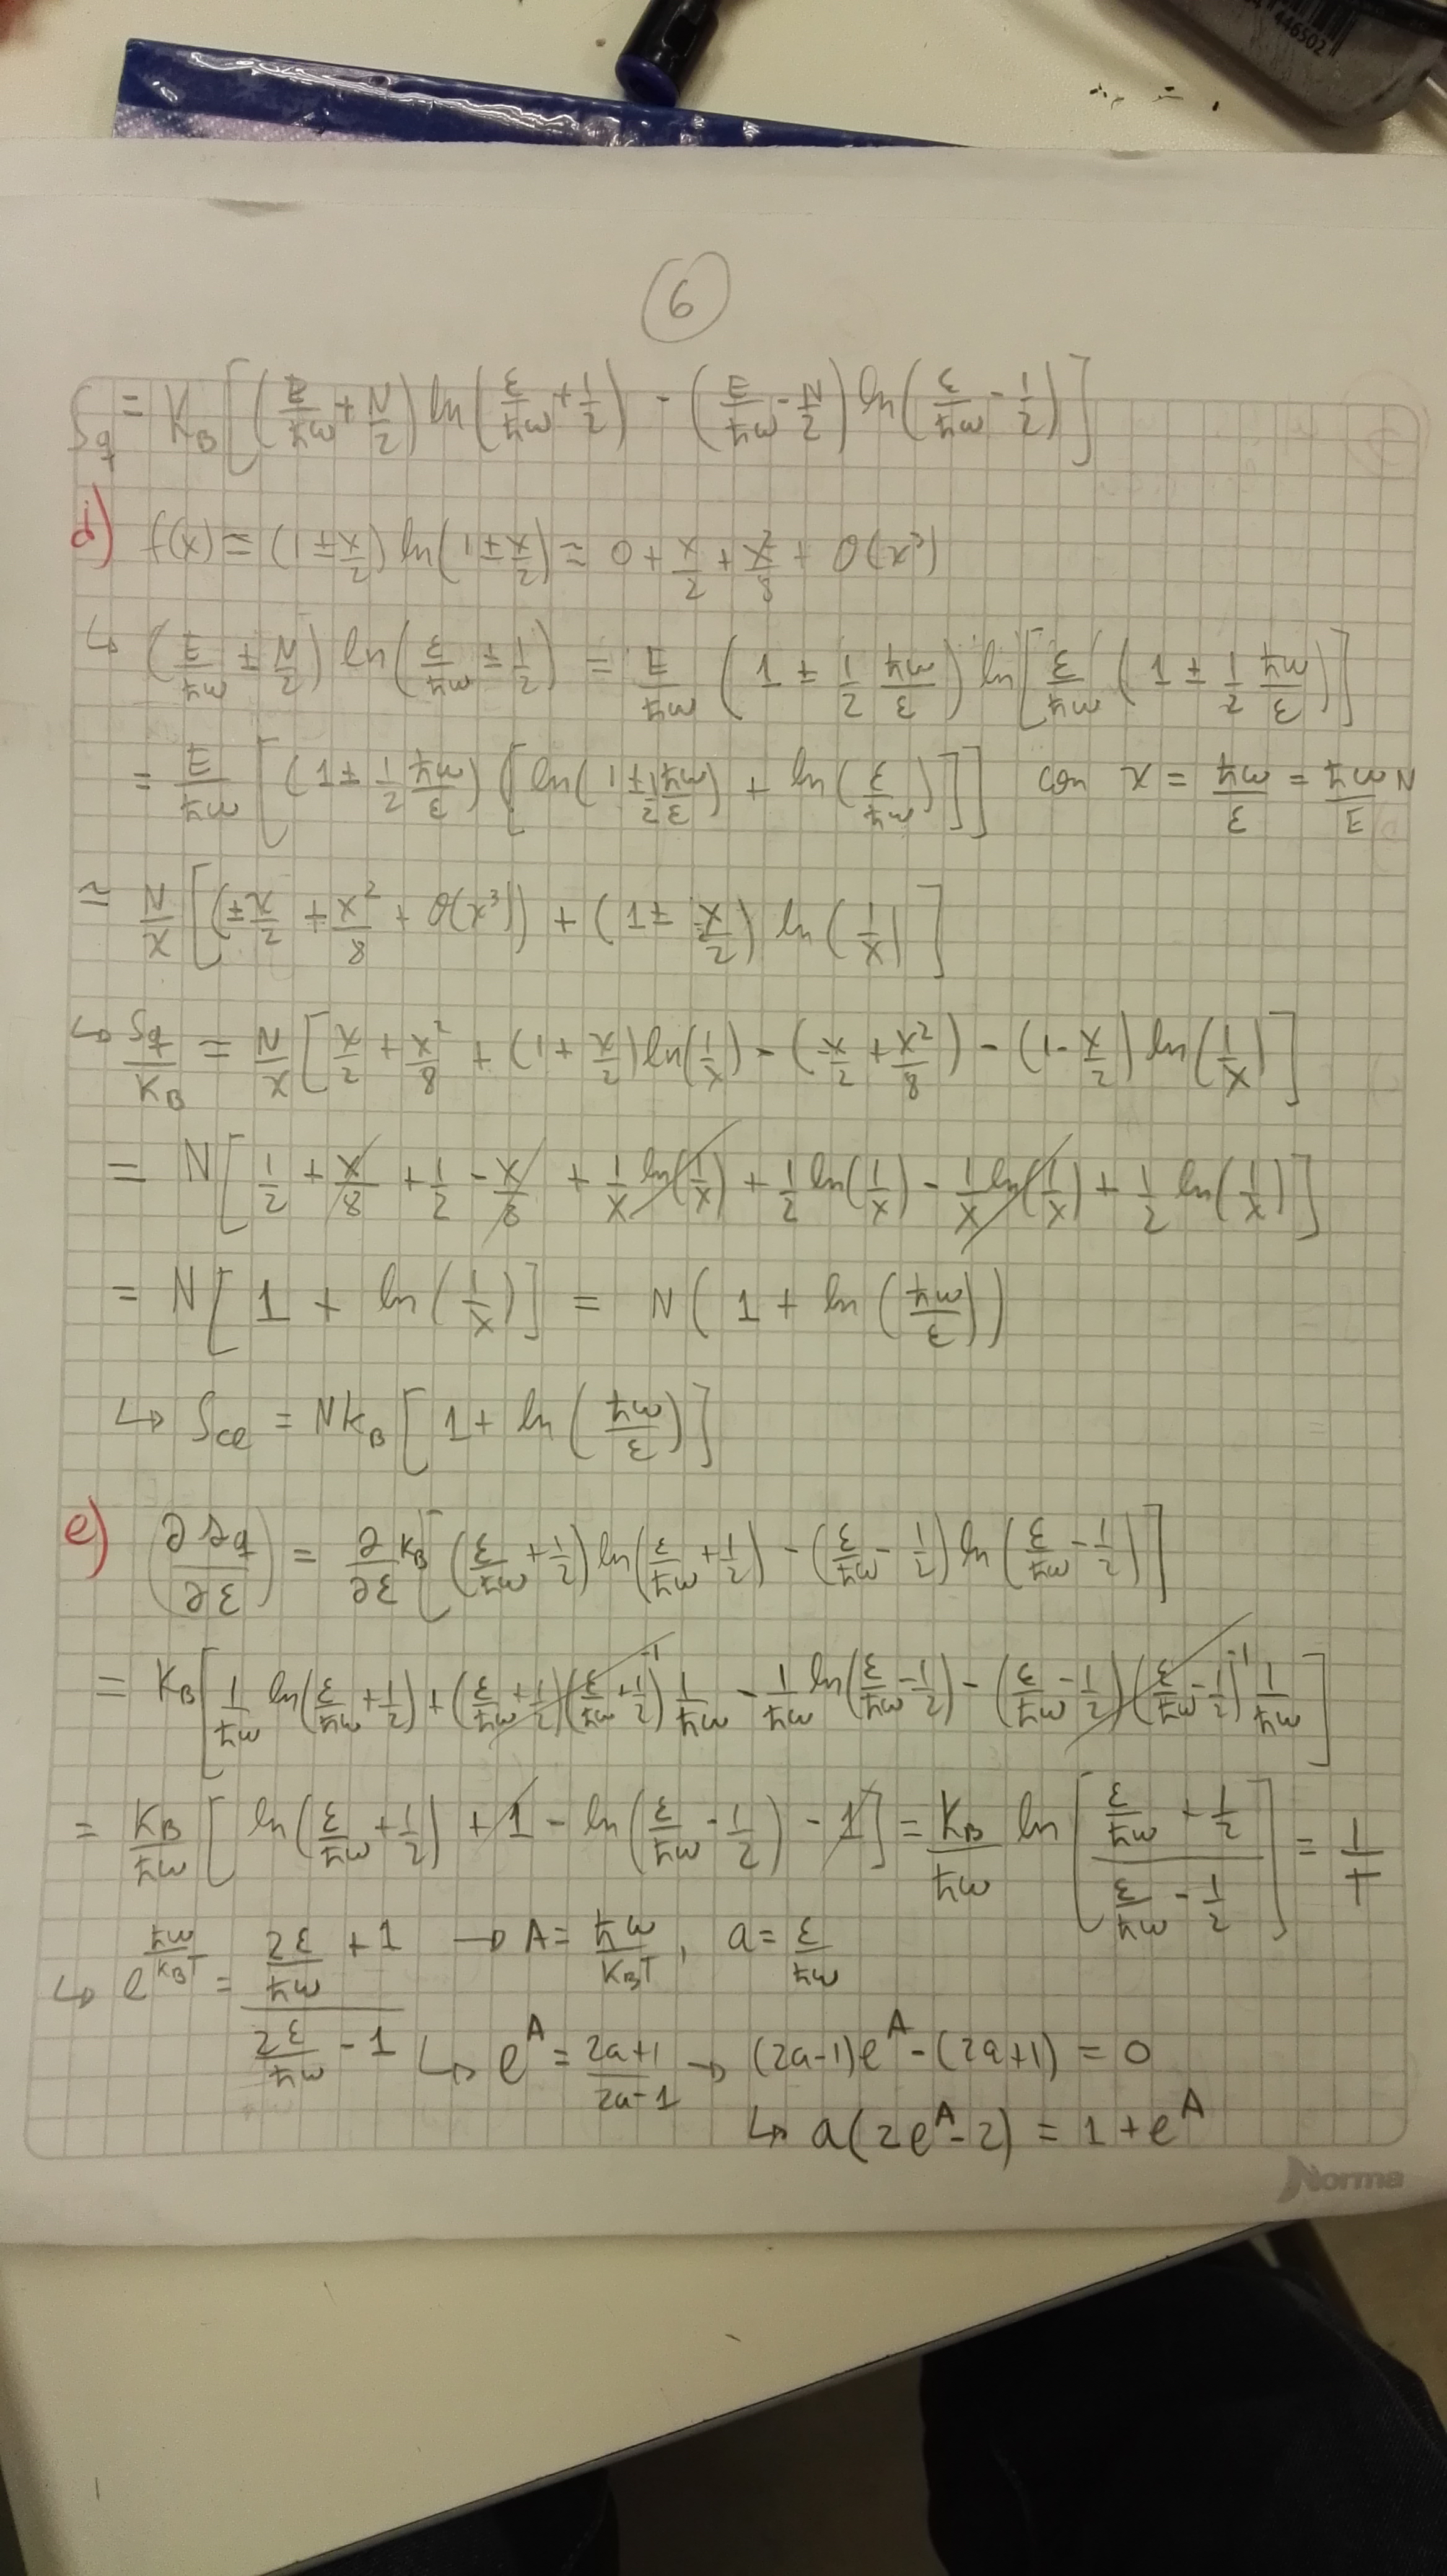 6
S_q = K_B [ (E/ħω + N/2) ln (ε/ħω + 1/2) - (E/ħω - N/2) ln (ε/ħω - 1/2) ]
d) f(x) = (1 ± x/2) ln (1 ± x/2) ≈ 0 ± x/2 + x²/8 + O(x³)
↳ (E/ħω ± N/2) ln (ε/ħω ± 1/2) = E/ħω (1 ± 1/2 ħω/ε) ln [ ε/ħω (1 ± 1/2 ħω/ε) ]
= E/ħω [ (1 ± 1/2 ħω/ε) [ ln (1 ± 1/2 ħω/ε) + ln (ε/ħω) ] ] con x = ħω/ε = Nħω/E
≈ N/x [ (± x/2 + x²/8 + O(x³)) + (1 ± x/2) ln (1/x) ]
↳ S_q/K_B = N/x [ x/2 + x²/8 + (1 + x/2) ln (1/x) - (-x/2 + x²/8) - (1 - x/2) ln (1/x) ]
= N [ 1/2 + x/8 + 1/2 - x/8 + 1/x ln (1/x) + 1/2 ln (1/x) - 1/x ln (1/x) + 1/2 ln (1/x) ]
= N [ 1 + ln (1/x) ] = N ( 1 + ln (ħω/ε) )
↳ S_ce = N k_B [ 1 + ln (ħω/ε) ]
e) (∂s_q/∂ε) = ∂/∂ε K_B [ (ε/ħω + 1/2) ln (ε/ħω + 1/2) - (ε/ħω - 1/2) ln (ε/ħω - 1/2) ]
= K_B [ 1/ħω ln (ε/ħω + 1/2) + (ε/ħω + 1/2)(ε/ħω + 1/2)⁻¹ 1/ħω - 1/ħω ln (ε/ħω - 1/2) - (ε/ħω - 1/2)(ε/ħω - 1/2)⁻¹ 1/ħω ]
= K_B/ħω [ ln (ε/ħω + 1/2) + 1 - ln (ε/ħω - 1/2) - 1 ] = K_B/ħω ln [ (ε/ħω + 1/2) / (ε/ħω - 1/2) ] = 1/T
↳ e^(ħω/K_BT) = (2ε/ħω + 1) / (2ε/ħω - 1) → A = ħω/K_BT, a = ε/ħω
↳ e^A = (2a+1)/(2a-1) → (2a-1)e^A - (2a+1) = 0
↳ a(2e^A - 2) = 1 + e^A
Norma
446502